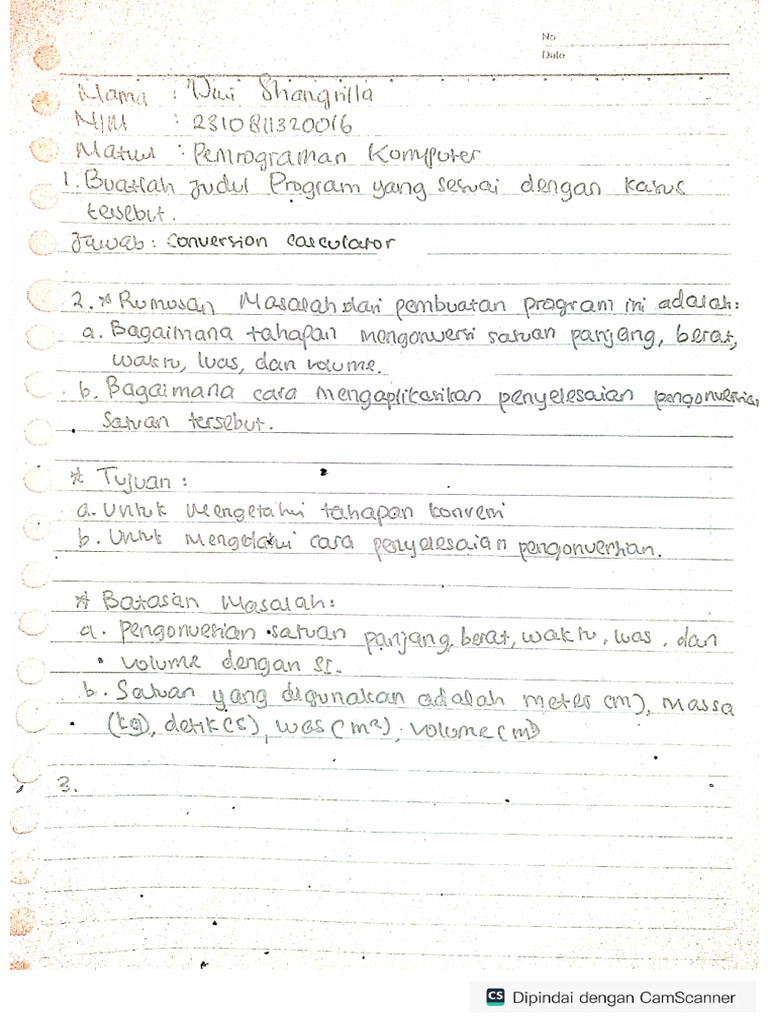 No
Date
Nama : Dwi Shangrilla
NIM : 2310811320016
Matkul : Pemrograman Komputer
1. Buatlah Judul Program yang sesuai dengan kasus
tersebut.
Jawab: Conversion calculator
2. * Rumusan Masalah dari pembuatan program ini adalah:
a. Bagaimana tahapan mengonversi satuan panjang, berat,
waktu, luas, dan volume.
b. Bagaimana cara mengaplikasikan penyelesaian pengonversian
Satuan tersebut.
* Tujuan :
a. Untuk Mengetahui tahapan konversi
b. Untuk Mengetahui cara penyelesaian pengonversian.
* Batasan Masalah:
a. Pengonversian satuan panjang, berat, waktu, luas, dan
volume dengan SI.
b. Satuan yang digunakan adalah meter (m), massa
(kg), detik (s), luas (m²), volume (m³)
3.
CS Dipindai dengan CamScanner